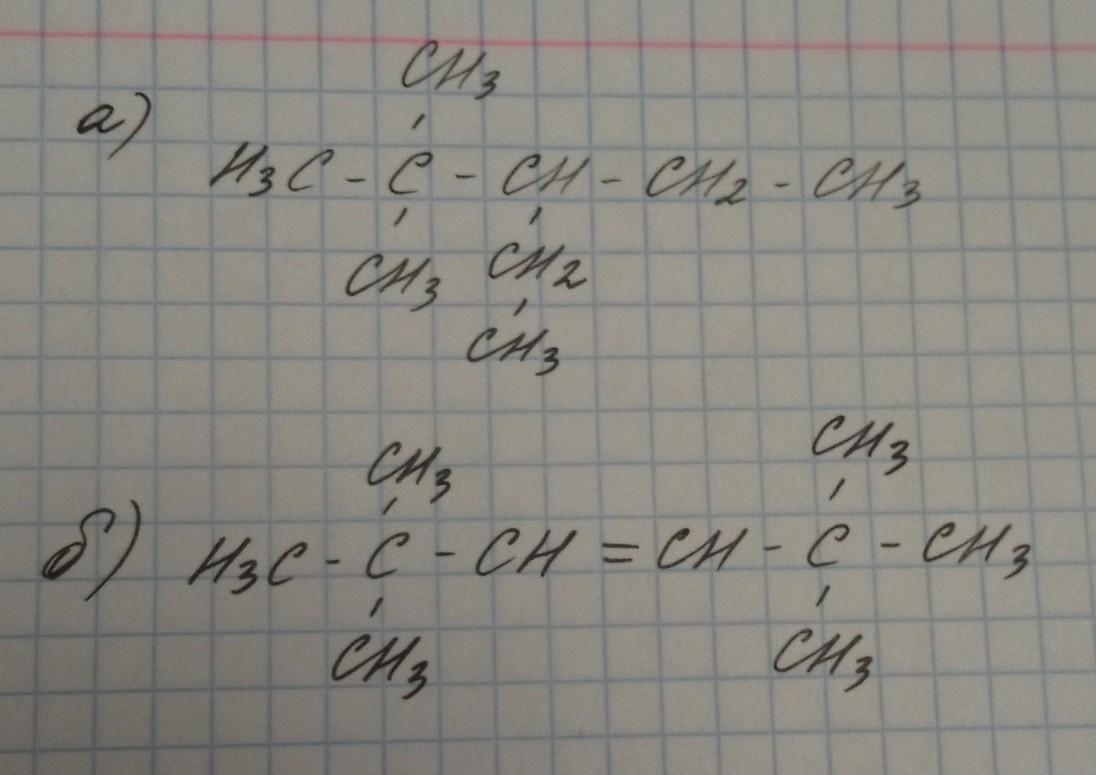 CH3
а)
H3C - C - CH - CH2 - CH3
CH3 CH2
CH3
CH3 CH3
б) H3C - C - CH = CH - C - CH3
CH3 CH3